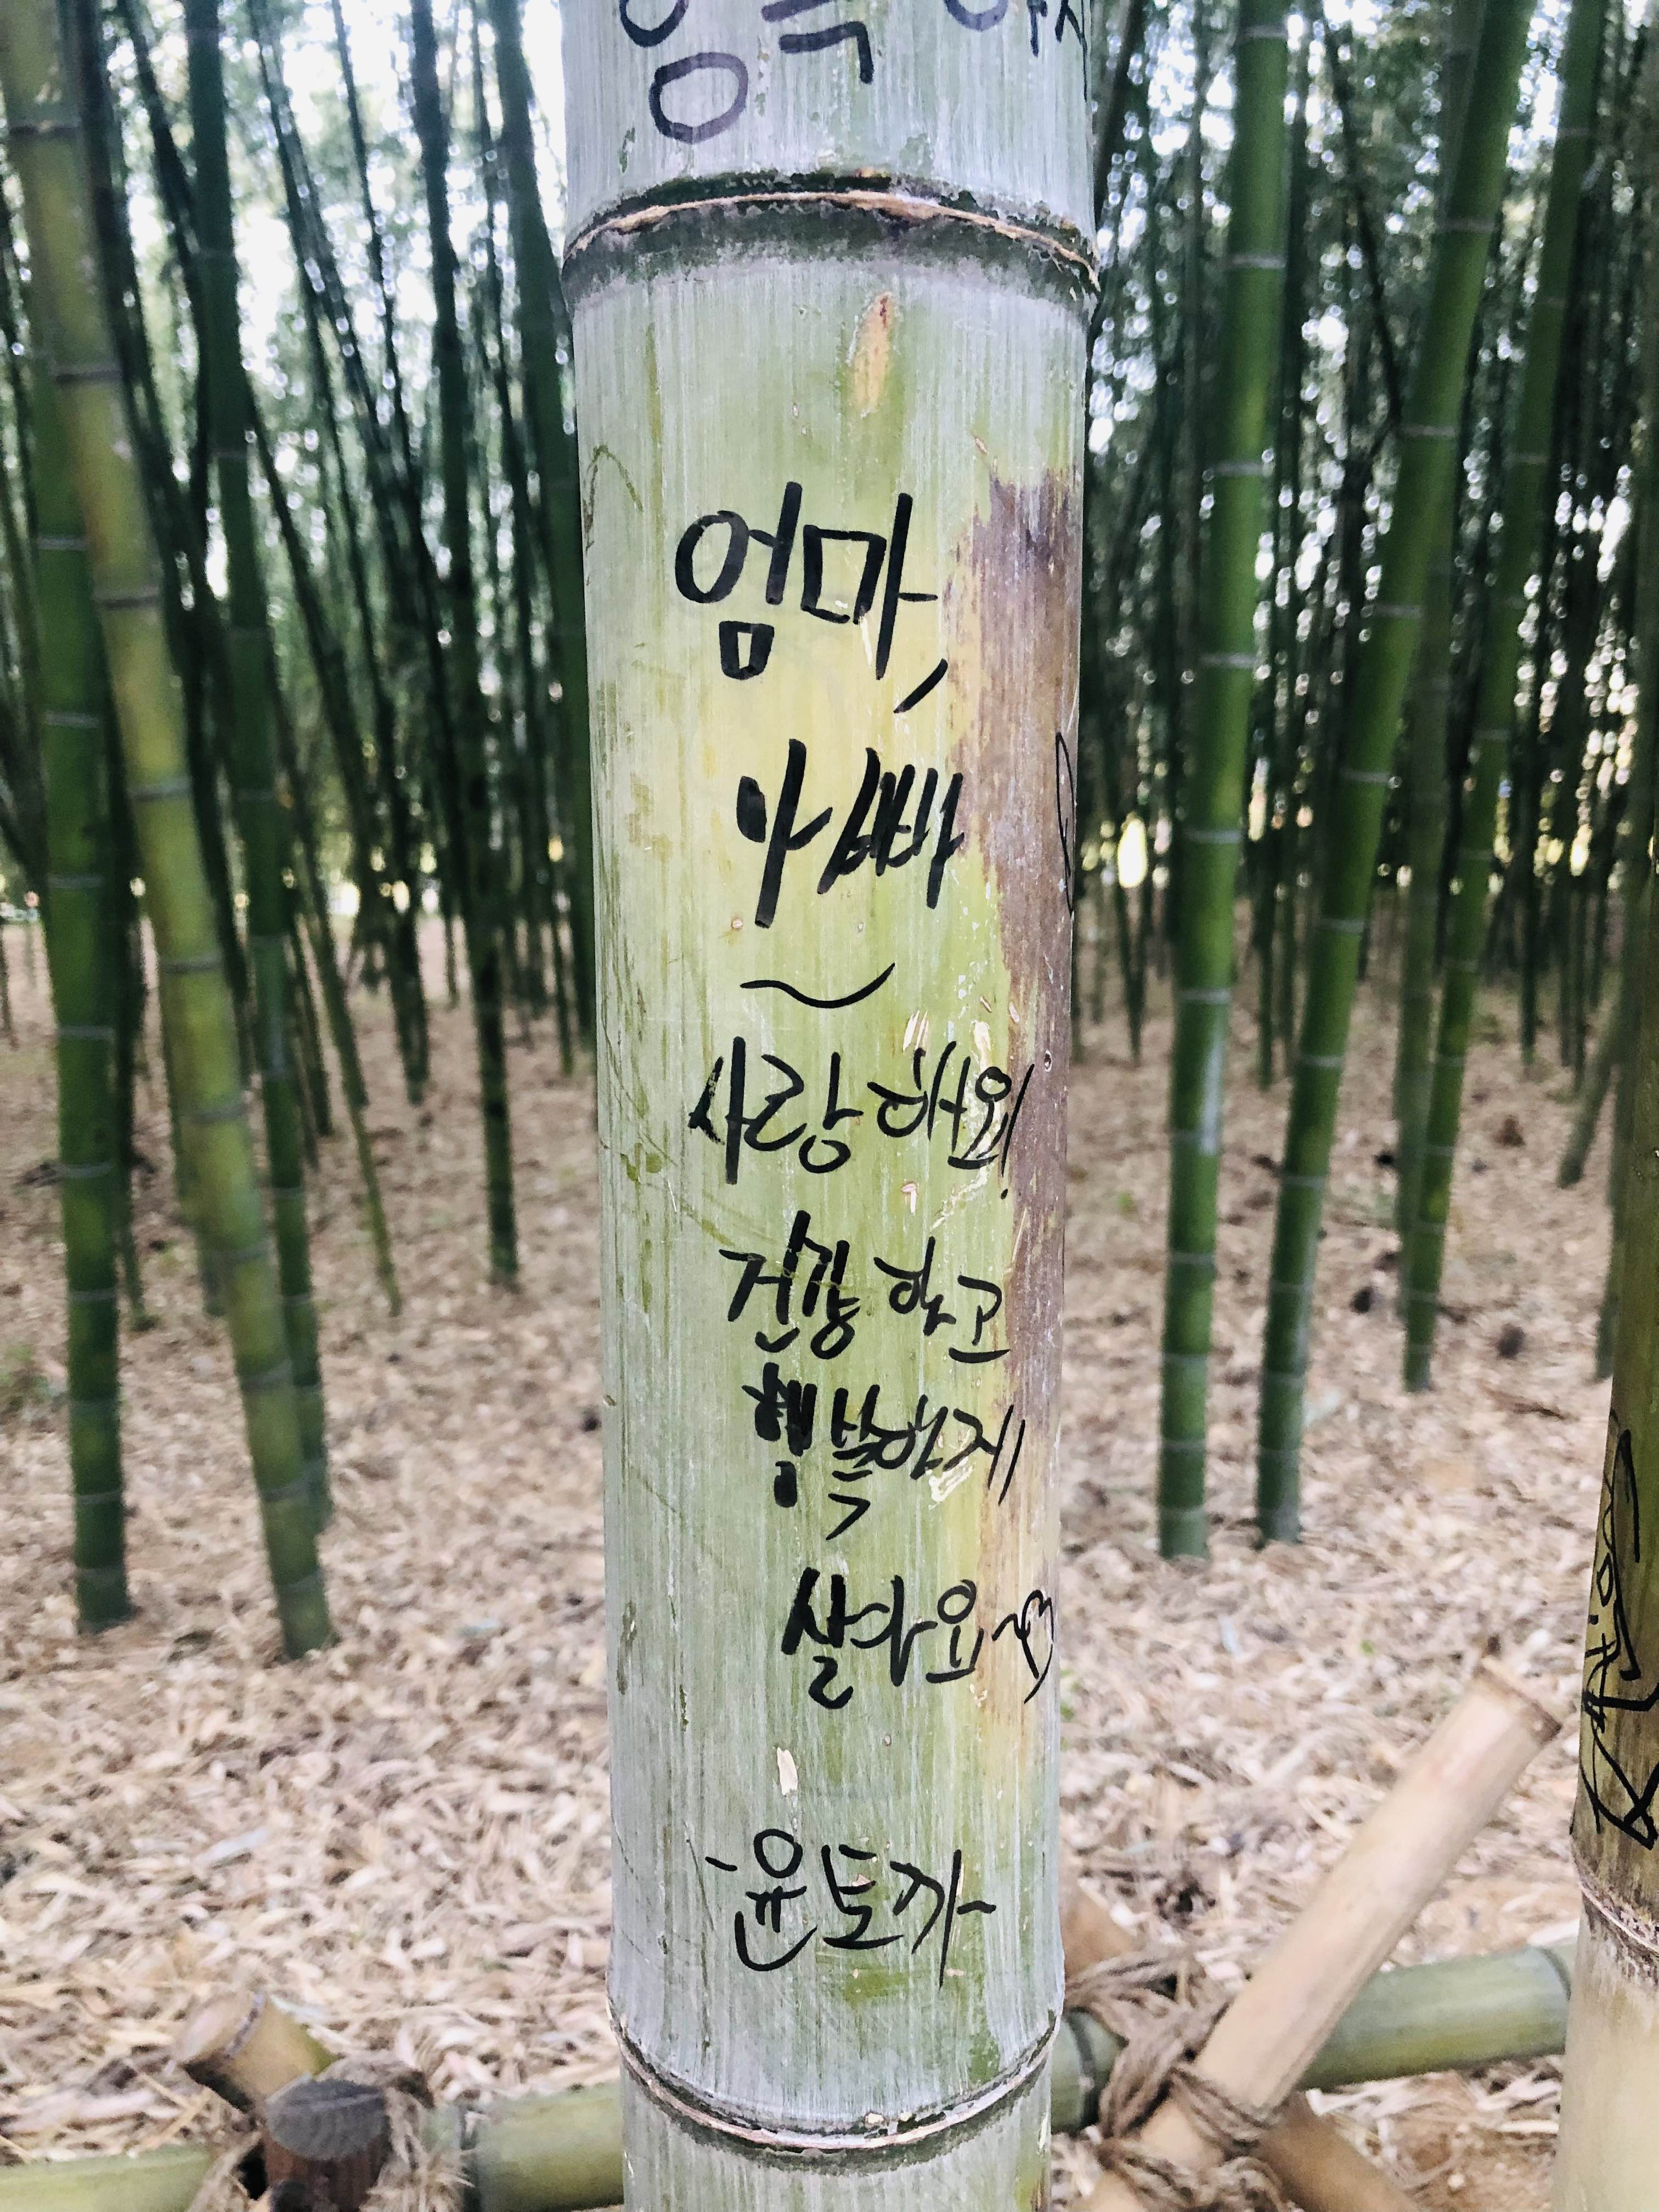 엄마,
아빠
~
사랑해요!
건강하고
행복하게
살아요~♡
-윤토까-